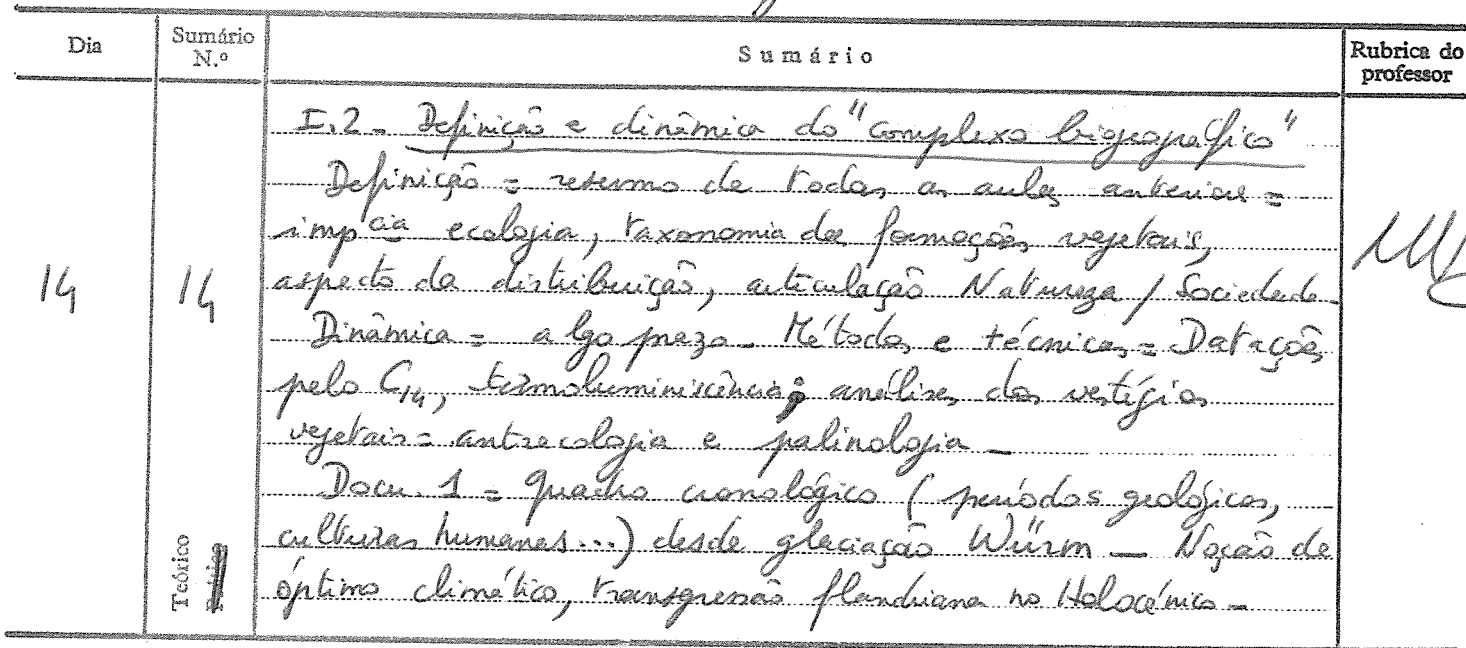 Dia
Sumário N.º
Sumário
Rubrica do professor
14
14
I.2 - Definição e dinâmica do "complexo biogeográfico"
Definição = resumo de todas as aulas anteriores =
impcia ecologia, taxonomia das formações vegetais,
aspecto da distribuição, articulação Natureza / Sociedade
Dinâmica = a lgo prazo - Métodos e técnicas = Datações
pelo C14, termoluminiscência; análises dos vestígios
vegetais = antracologia e palinologia -
Docu. 1 = Quadro cronológico (períodos geológicos,
culturas humanas...) desde glaciação Würm - Noção de
óptimo climático, transgressão flandriana no Holocénico -
Teórico